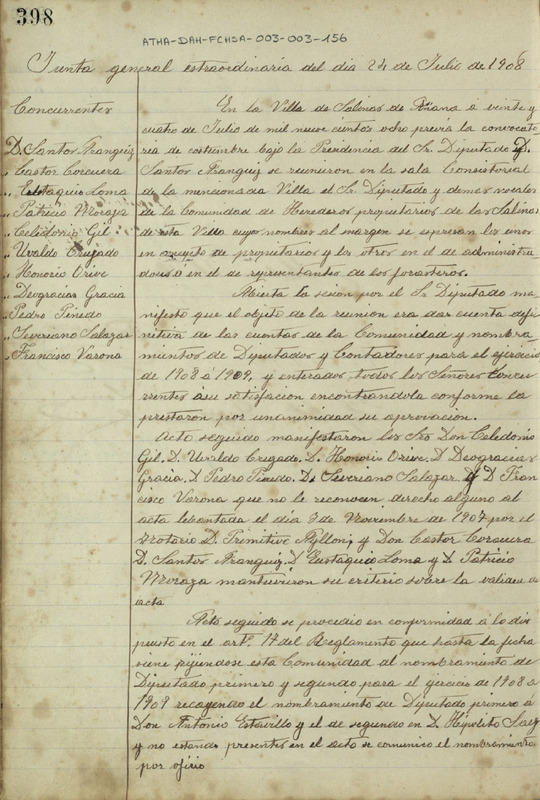 398
ATHA-DAH-FCHSA-003-003-156
Junta general estraordinaria del dia 24 de Julio de 1908
Concurrentes
D. Santos Franguiz
" Castor Corcuera
" Eustaquio Loma
" Patricio Moraza
" Celidonio Gil
" Uvaldo Crugado
" Honorio Orive
" Deogracias Gracia
" Pedro Pinedo
" Severiano Salazar
" Francisco Varona
En la Villa de Salinas de Añana á veinte y
cuatro de Julio de mil nueve cientos ocho previa la convocato
ria de costumbre bajo la Presidencia del Sr. Diputado D.
Santos Franguiz se reunieron en la sala Consistorial
de la mencionada Villa el Sr. Diputado y demas vocales
de la Comunidad de Herederos propietarios de las Salinas
de esta Villa cuyos nombres al margen se espresan los unos
en concepto de propietarios y los otros en el de administra
dores ó en el de representantes de los forasteros.
Abierta la sesion por el Sr. Diputado ma-
nifesto que el objeto de la reunion era dar cuenta defi-
nitiva de las cuentas de la Comunidad y nombra
mientos de Diputados y Contadores para el ejercicio
de 1908 á 1909, y enterados todos los Señores Concu
rrentes á su satisfacion encontrandola conforme la
prestaron por unanimidad su aprovacion.
Acto seguido manifestaron los Sres Don Celedonio
Gil. D. Uvaldo Crugado. D. Honorio Orive. D Deogracias
Gracia. D. Pedro Pinedo. D. Severiano Salazar y D Fran
cisco Varona que no le reconocen derecho alguno al
acta lebantada el dia 3 de Noviembre de 1907 por el
Notario D. Primitivo Ayllon; y Don Castor Corcuera
D. Santos Franguiz. D Eustaquio Loma y D. Patricio
Moraza mantuvieron su criterio sobre la validez de
acta
Acto seguido se procedio en conformidad á lo dis
puesto en el artº. 17 del Reglamento que hasta la fecha
viene rijiendose esta Comunidad al nombramiento de
Diputado primero y segundo para el ejercicio de 1908 á
1909 recayendo el nombramiento de Diputado primero á
Don Antonio Estavillo y el de segundo en D. Hipolito Saez
y no estando presentes en el acto se comunico el nombramiento
por oficio